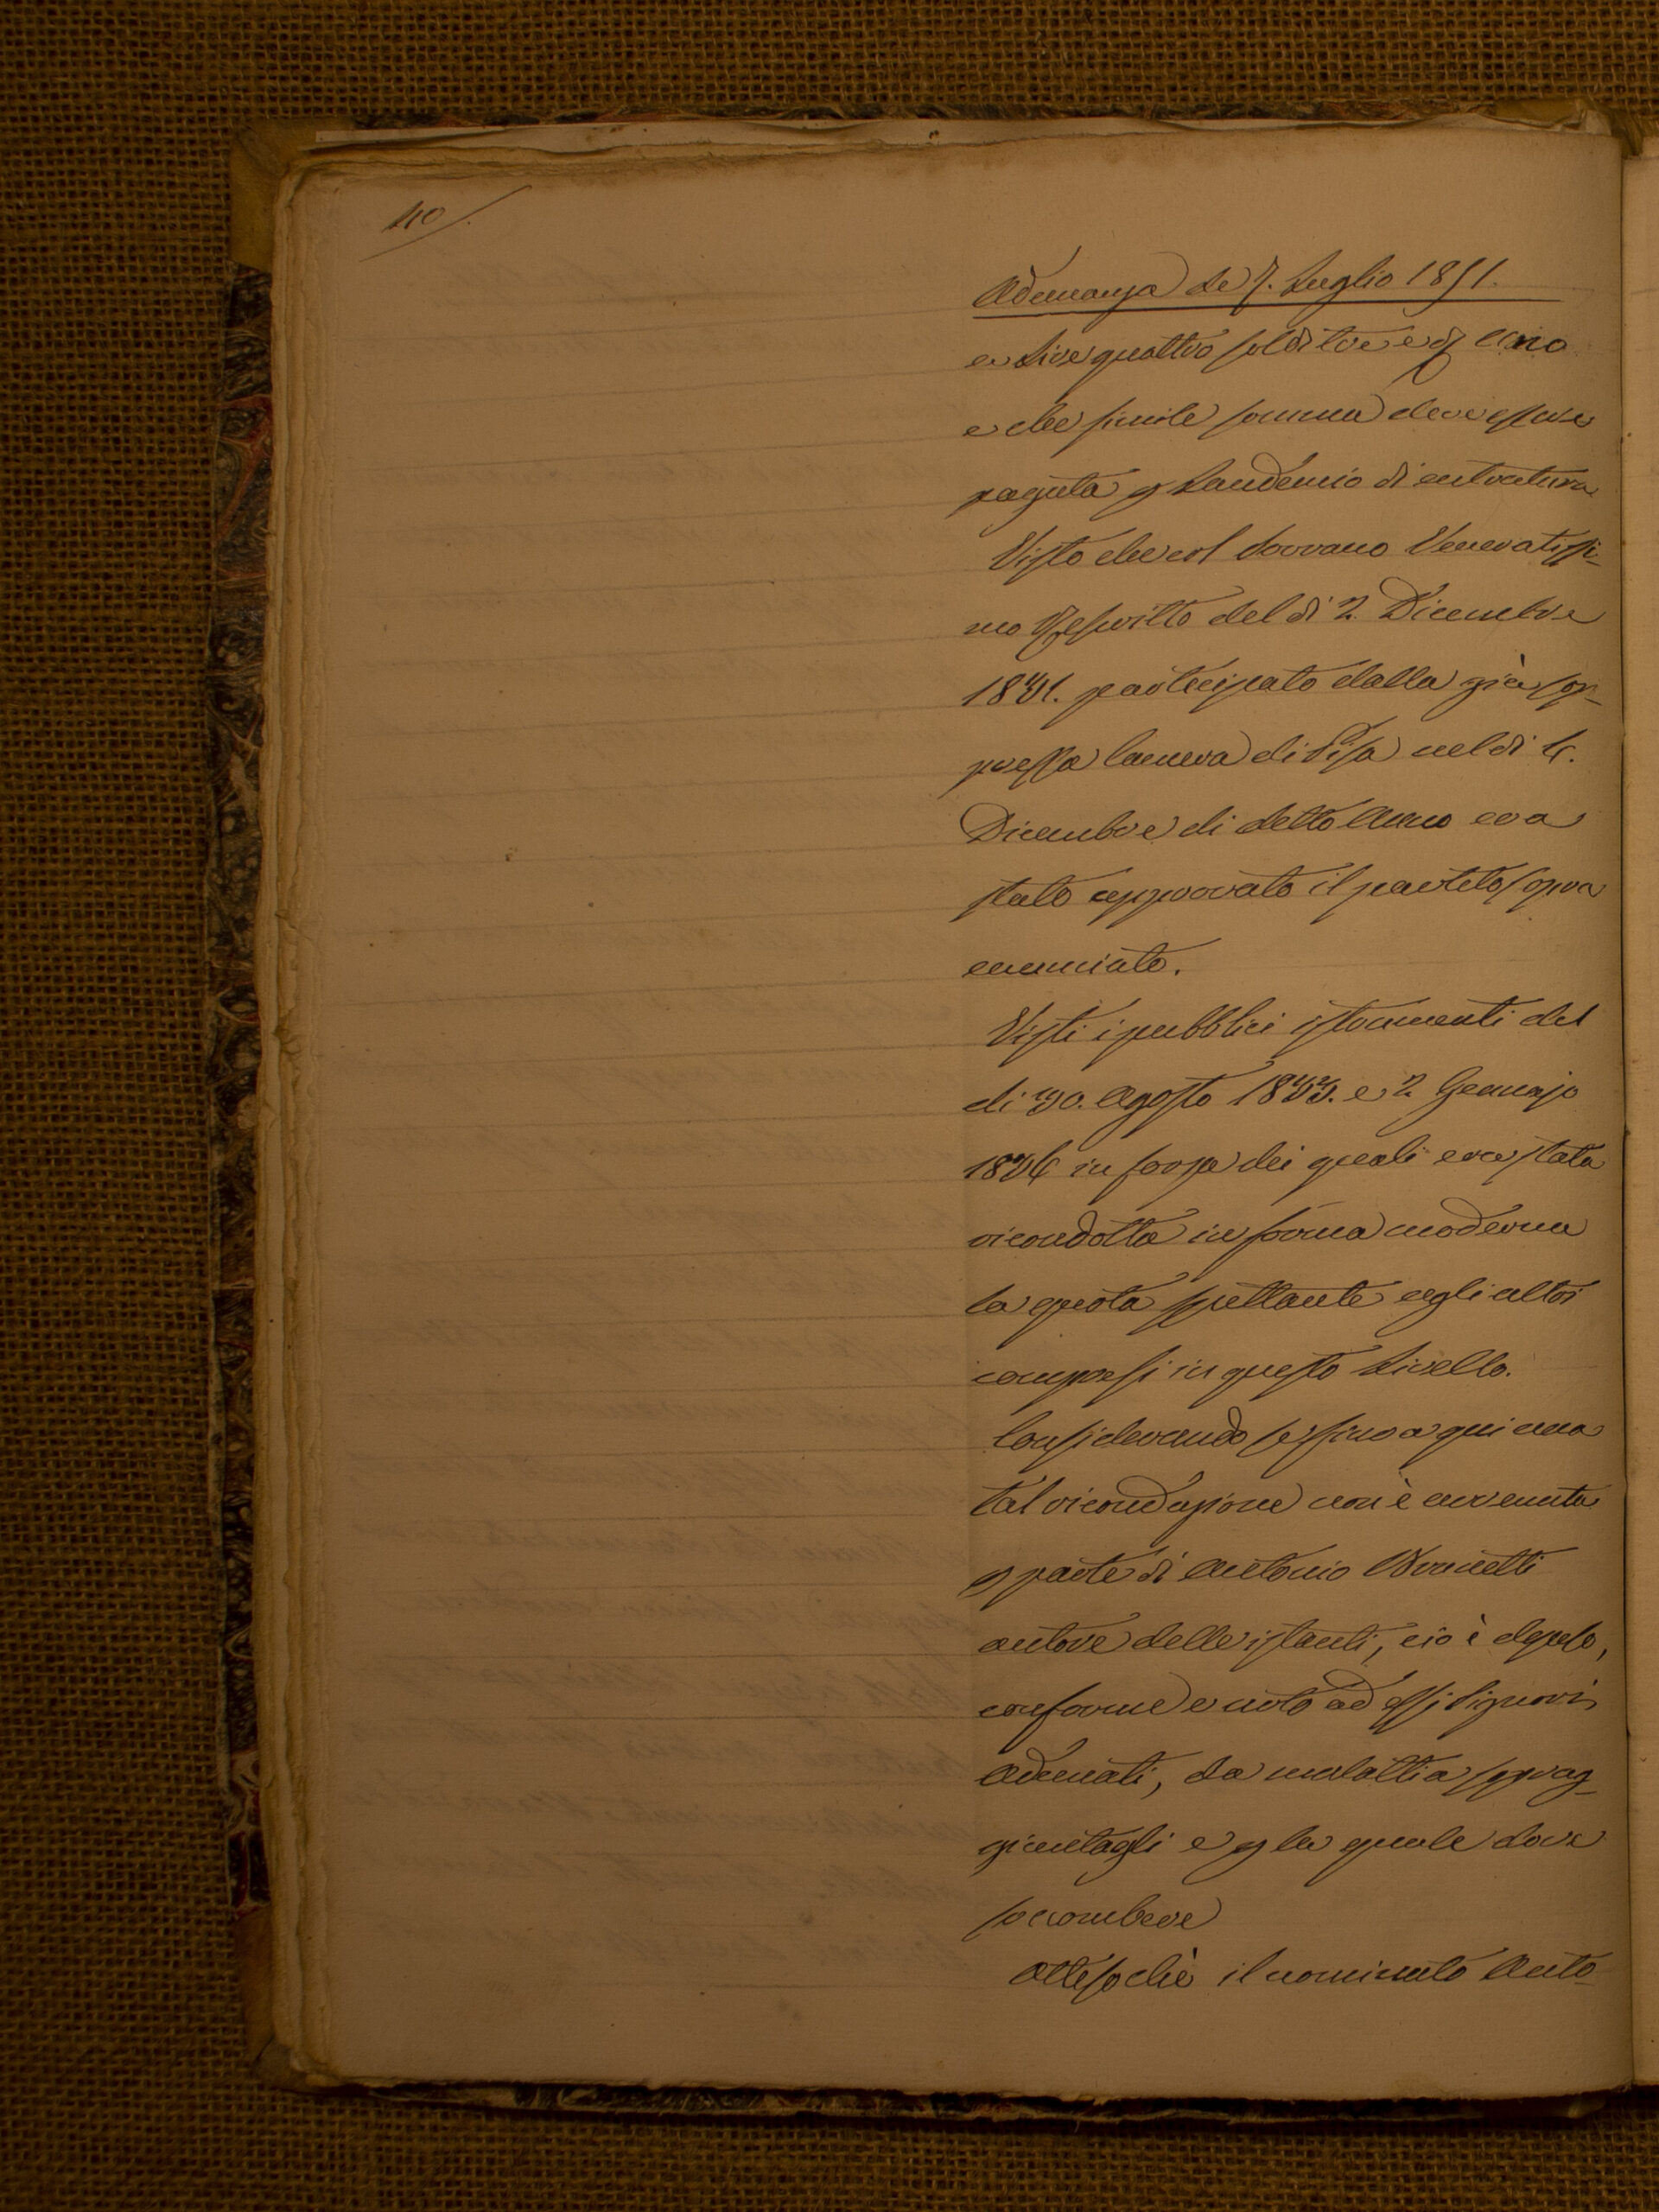 110
Adunanza de 7. Luglio 1851.
a Lire quattro soldi tre e d. uno
e che simile somma deve essere
pagata p Laudemio di entratura
Visto che col Sovrano Veneratissi-
mo Rescritto del dì 2. Dicembre
1831. partecipato dalla già sop-
pressa Camera di Pisa nel dì 6.
Dicembre di detto Anno era
stato approvato il partito sopra
enunciato.
Visti i pubblici istrumenti del
di 30. Agosto 1833. e 2 Gennajo
1836 in forza dei quali era stata
ricondotta in forma moderna
la quota spettante agli altri
compresi in questo Livello.
Considerando se fino a qui una
tal riconduzione non è avvenuta
p parte di Antonio
autore delle istanti, ciò è dipeso,
conforme e noto ad essi Signori
Adunati, da malattia soprag-
giuntagli e p la quale dove
soccombere
Attesochè il nominato Anto-